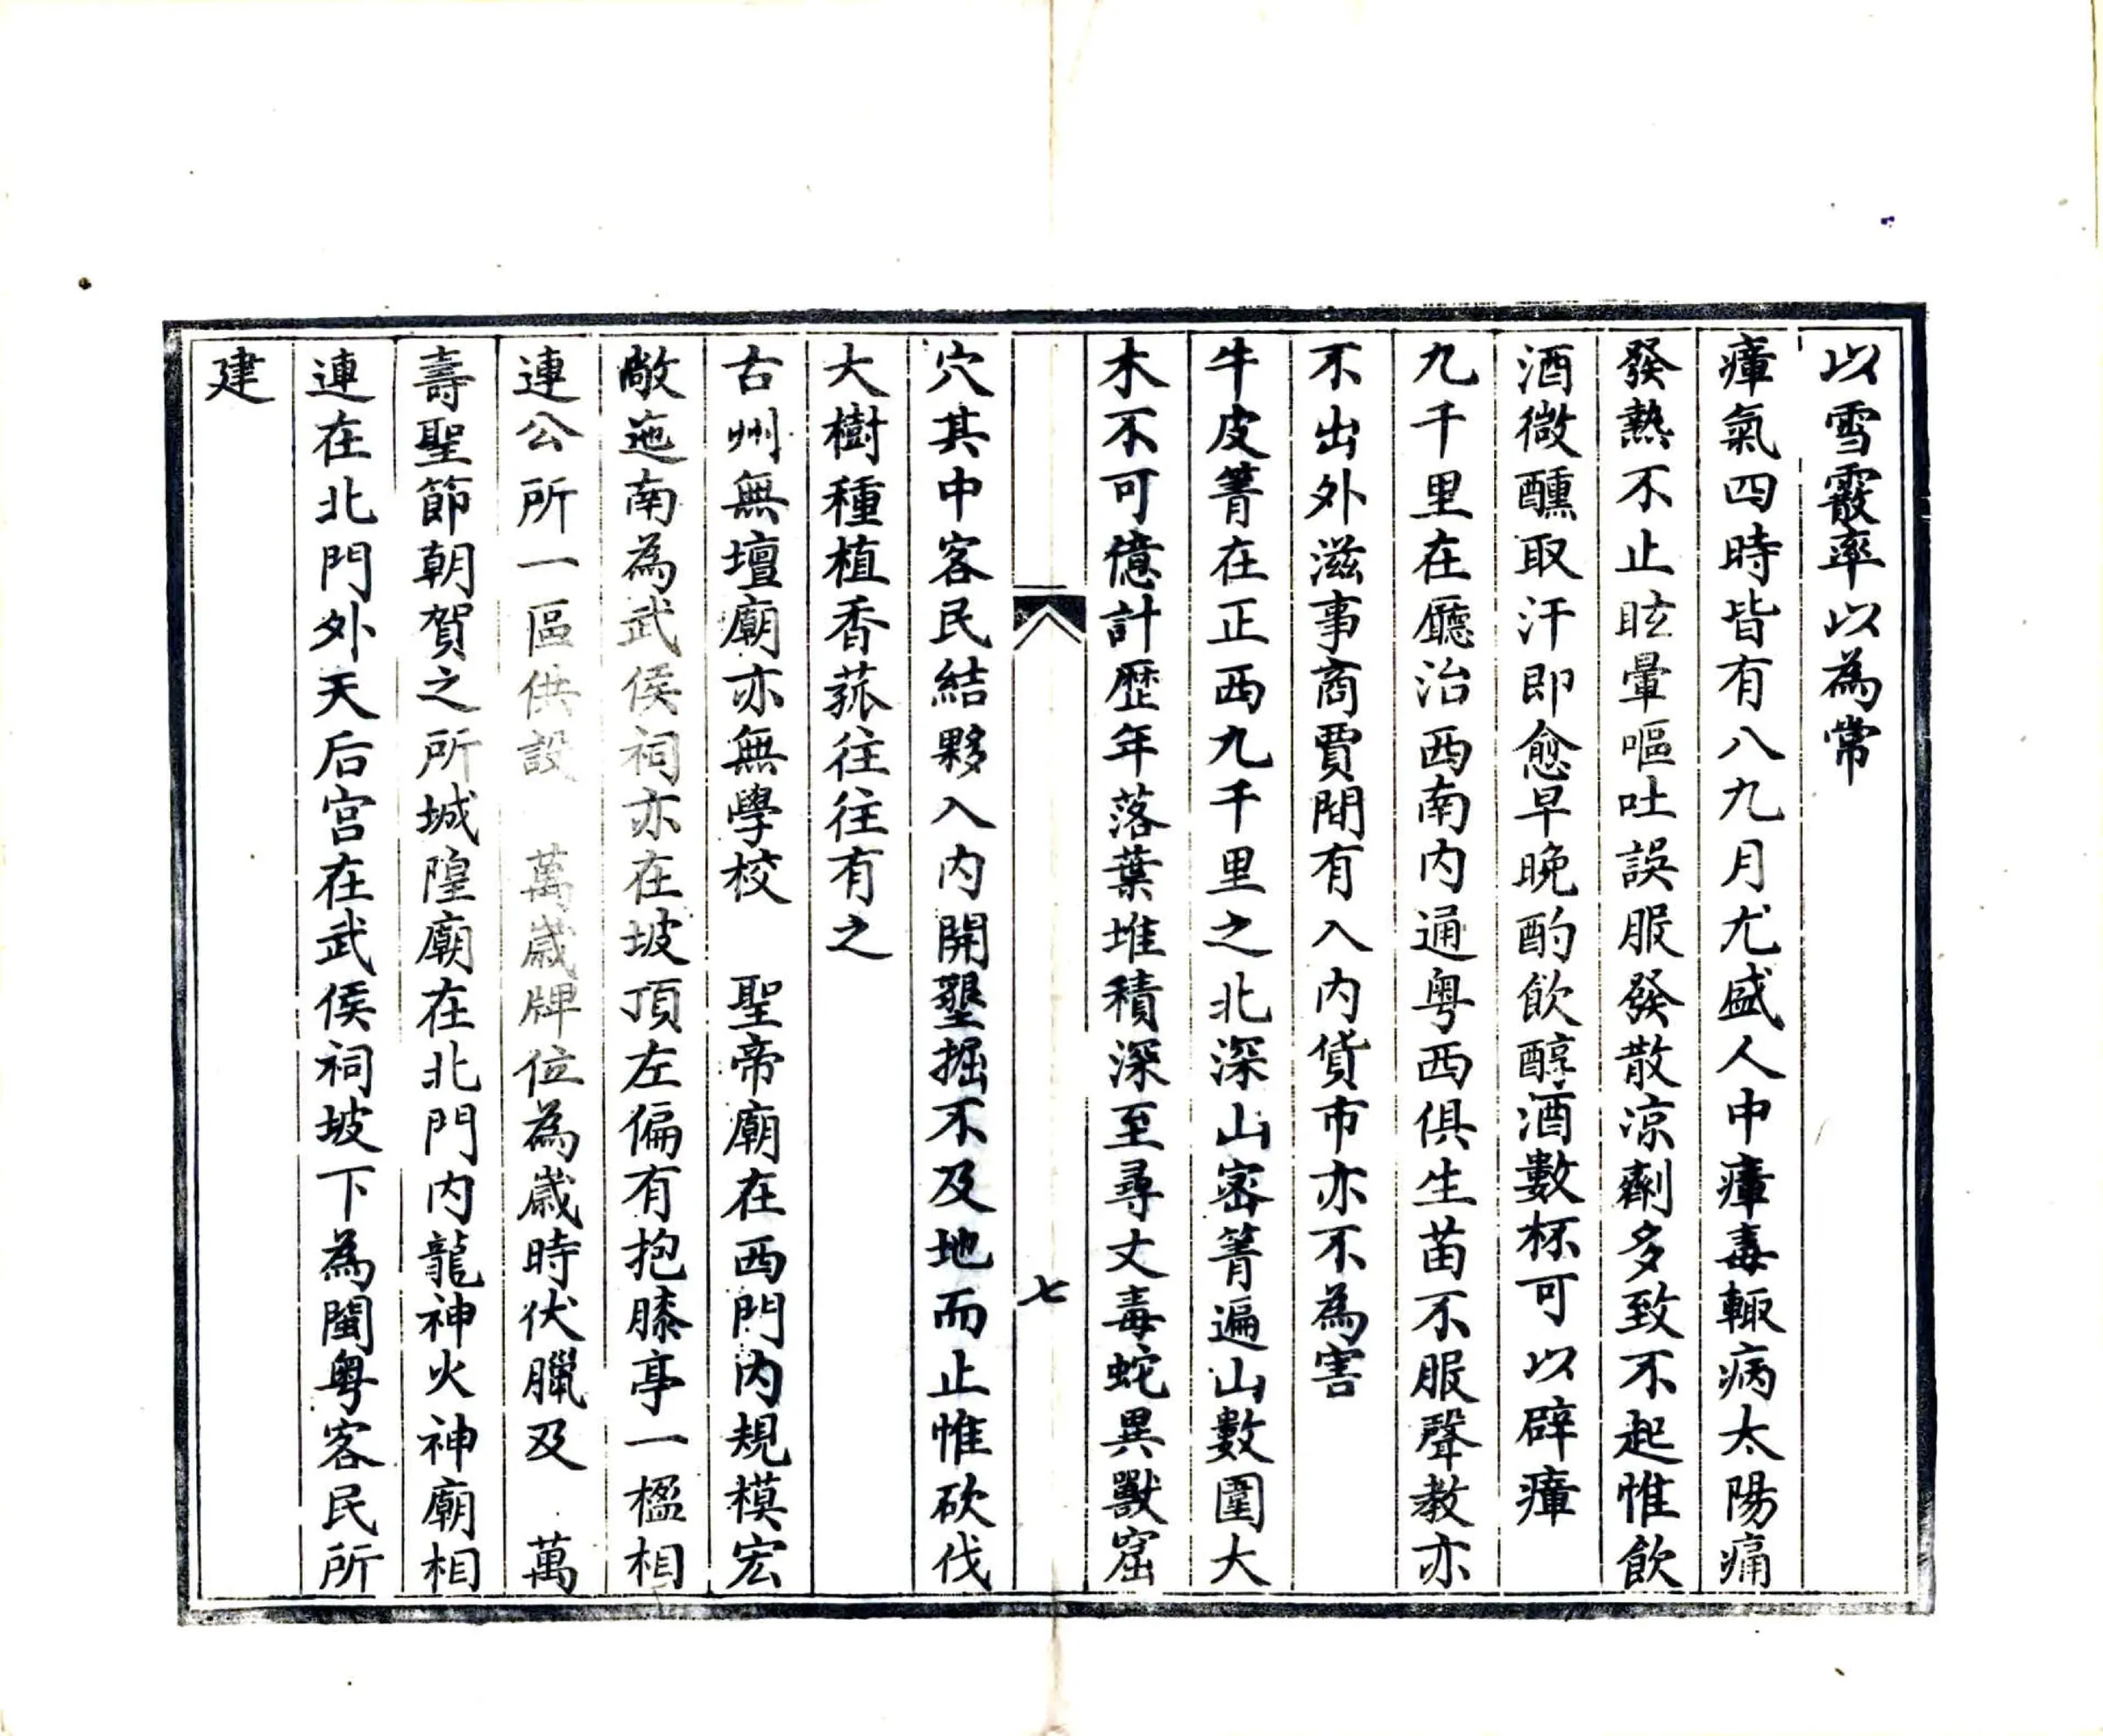 以雪霰率以為常
瘴氣四時皆有八九月尤盛人中瘴毒輙病太陽痛
發熱不止眩暈嘔吐誤服發散涼劑多致不起惟飲
酒微醺取汗即愈早晚酌飲醇酒數杯可以辟瘴
九千里在廳治西南內通粤西俱生苗不服聲教亦
不出外滋事商賈間有入內貨市亦不為害
牛皮箐在正西九千里之北深山密箐遍山數圍大
木不可億計歴年落葉堆積深至尋丈毒蛇異獸窟
七
穴其中客民結夥入內開墾掘不及地而止惟砍伐
大樹種植香菰往往有之
古州無壇廟亦無學校　聖帝廟在西門內規模宏
敞迤南為武侯祠亦在坡頂左偏有抱膝亭一楹相
連公所一區供設　萬歲牌位為歲時伏臘及　萬
壽聖節朝賀之所城隍廟在北門內龍神火神廟相
連在北門外天后宮在武侯祠坡下為閩粤客民所
建